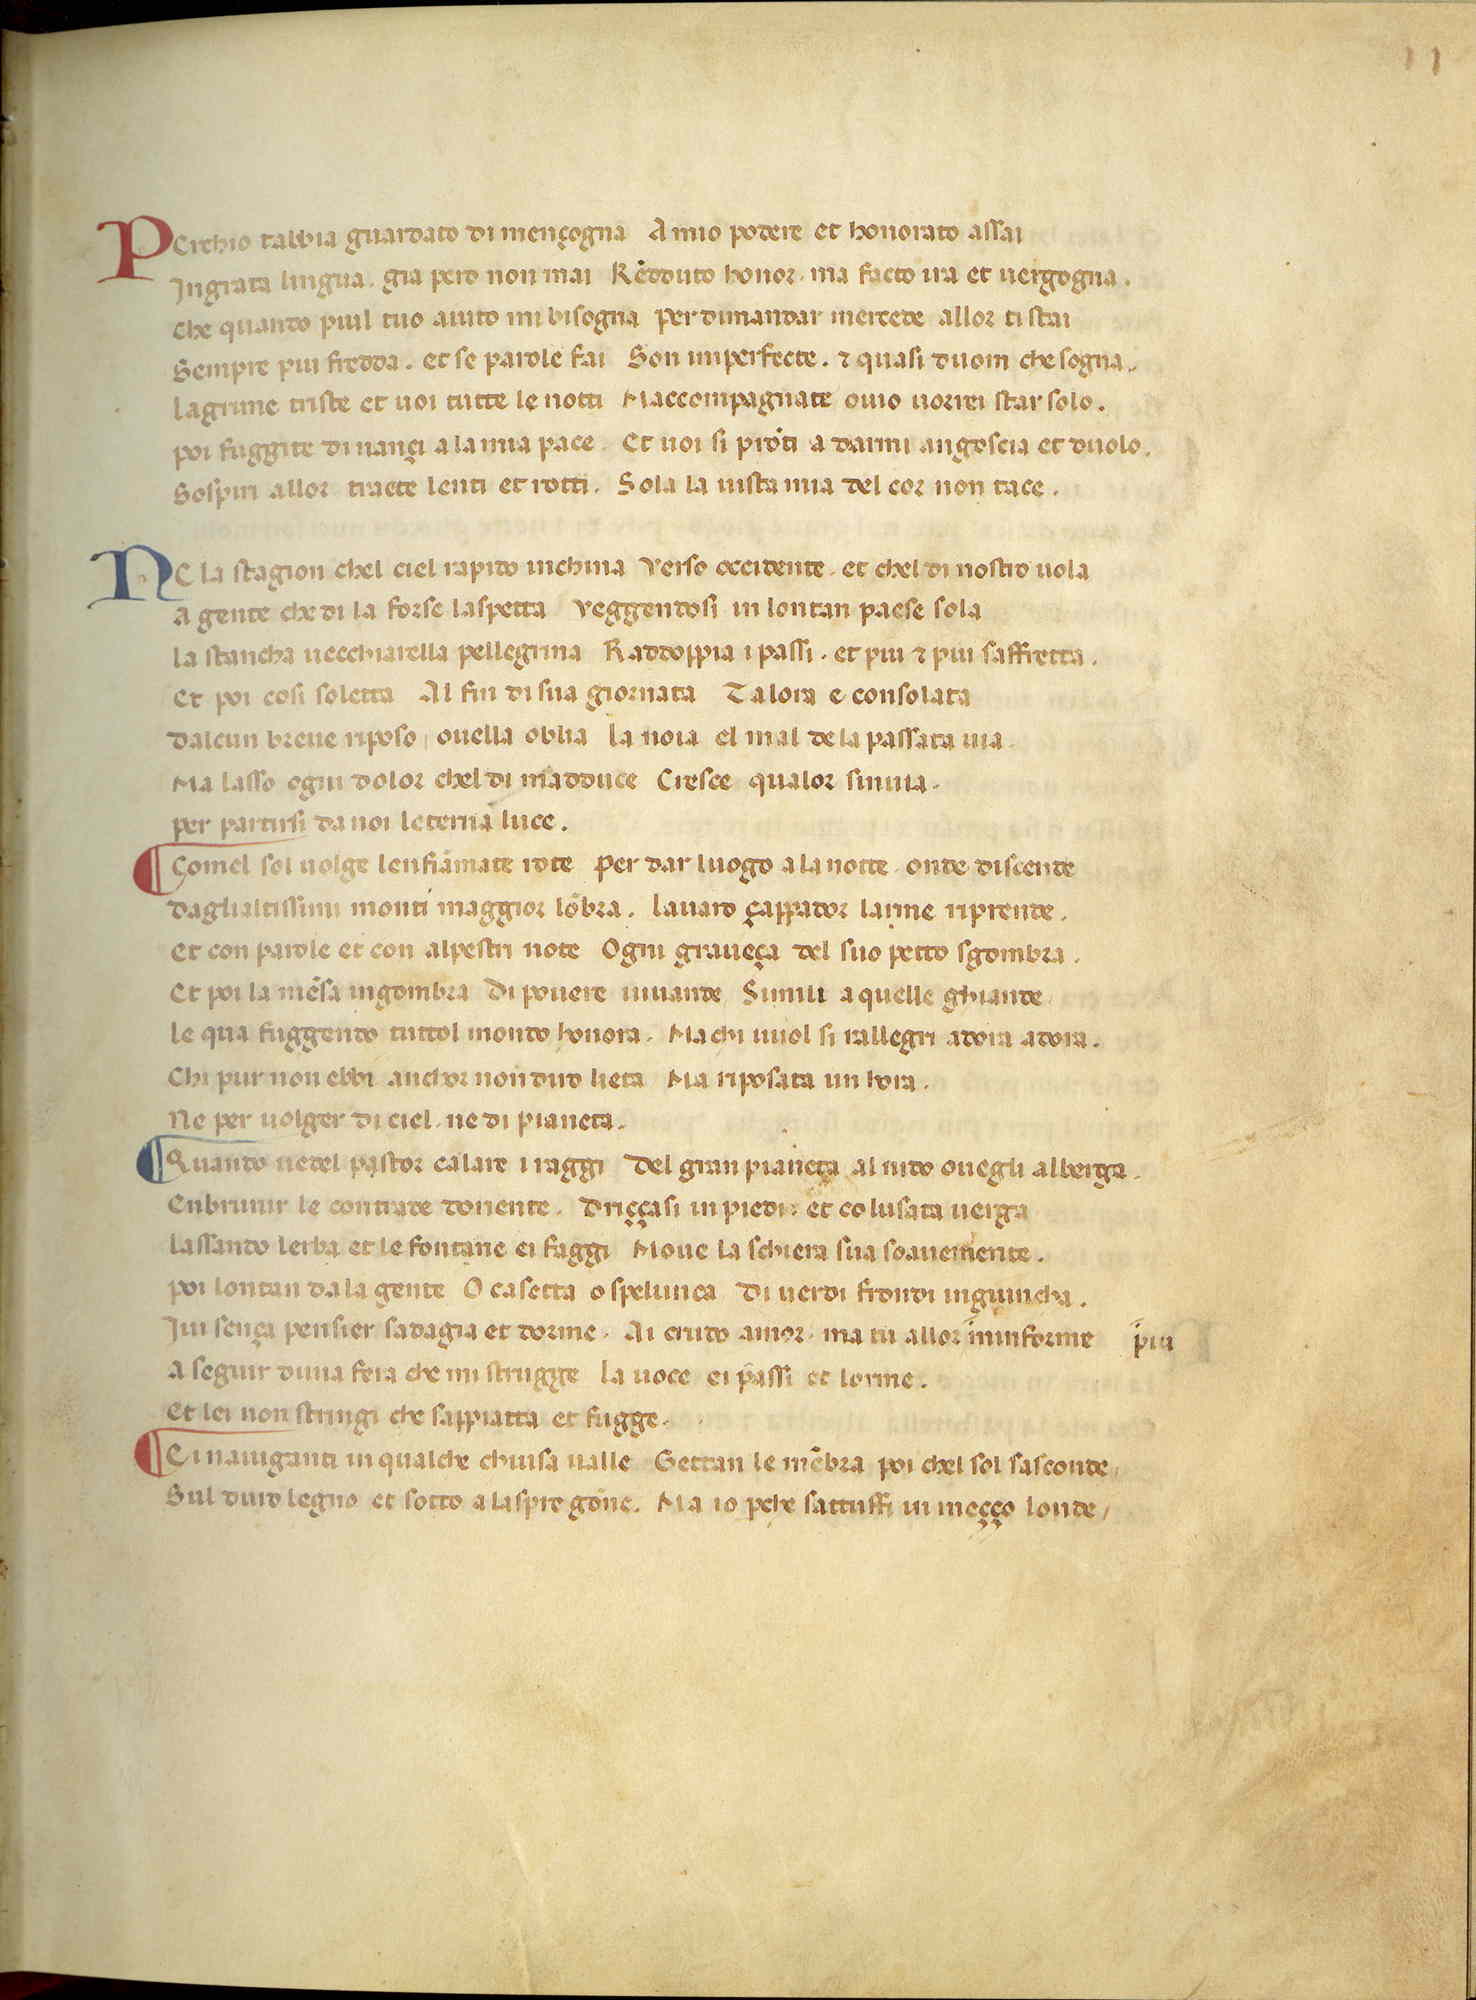 11
PErchio tabbia guardato di mençogna A mio podere et honorato assai
Ingrata lingua. gia pero non mai Rẽdduto honor. ma facto ira et uergogna.
Che quanto piul tuo aiuto mi bisogna Per dimandar mercede allor ti stai
Sempre piu fredda. et se parole fai Son imperfecte. ⁊ quasi duom che sogna.
Lagrime triste et uoi tutte le notti Maccompagnate ouio uorrei star solo.
poi fuggite dinançi a la mia pace. Et uoi si prõti a darmi angoscia et duolo.
Sospiri allor tracte lenti et rotti. Sola la uista mia del cor non tace.
NE la stagion chel ciel rapido inchina Verso occidente. et chel di nostro uola
A gente che di la forse laspetta Veggendosi in lontan paese sola
La stancha uecchiarella pellegrina Raddoppia i passi. et piu ⁊ piu saffretta.
Et poi cosi soletta Al fin di sua giornata Talora e consolata
Dalcun breue riposo, ouella oblia La noia el mal de la passata uia.
Ma lasso ogni dolor chel di madduce Cresce qualor sinuia.
per partirsi da noi leterna luce.
¶ Comel sol uolge lenfiãmate rote Per dar luogo a la notte. onde discende
Daglialtissimi monti maggior lõbra. Lauaro çappador larme riprende.
Et con parole et con alpestri note Ogni graueça del suo petto sgombra.
Et poi la mẽsa ingombra Di pouere uiuande Simili a quelle ghiande
Le qua fuggendo tuttol mondo honora. Ma chi uuol si rallegri adora adora.
Chi pur non ebbi anchor non diro lieta Ma riposata un hora.
Ne per uolger di ciel. ne di pianeta.
¶ Quando uedel pastor calare i raggi Del gran pianeta al nido ouegli alberga.
Enbrunir le contrade doriente. Driççasi in piedi. et co lusata uerga
Lassando lerba et le fontane ei faggi Moue la schiera sua soauemente.
Poi lontan da la gente O casetta o spelunca Di uerdi frondi ingiuncha.
Iui sença pensier sadagia et dorme. Ai crudo amor. ma tu allor mimforme piu
A seguir duna fera che mi strugge La uoce ei passi et lorme.
Et lei non stringi che sappiatta et fugge.
¶ Ei nauiganti in qualche chiusa ualle Gettan le mẽbra poi chel sol sasconde,
Sul duro legno et sotto a laspre gõne. Ma io pche sattuffi in meçço londe,